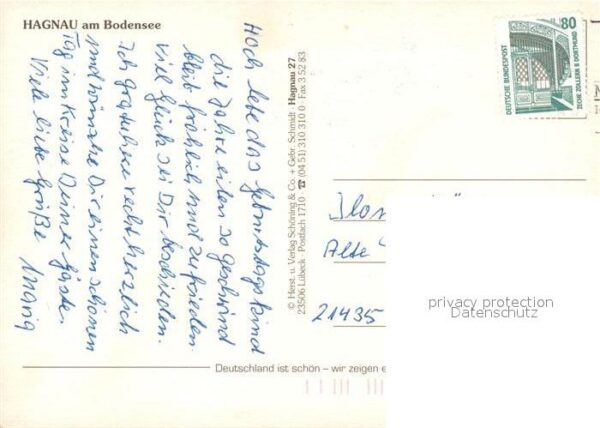 HAGNAU am Bodensee
Hoch lebe das Geburtstagskind
die Jahre eilen so geschwind
bleib fröhlich und zufrieden
viel Glück sei Dir beschieden.
Ich gratuliere recht herzlich
und wünsche Dir einen schönen
Tag im Kreise Deiner Gäste.
Viele liebe Grüße
© Herst. u. Verlag Schöning & Co. + Gebr. Schmidt · Hagnau 27
23506 Lübeck · Postfach 1710 · ☎ (04 51) 310 310 0 · Fax 3 52 83
80
DEUTSCHE BUNDESPOST
ZECHE ZOLLERN II DORTMUND
Alte
21435
privacy protection
Datenschutz
Deutschland ist schön – wir zeigen e